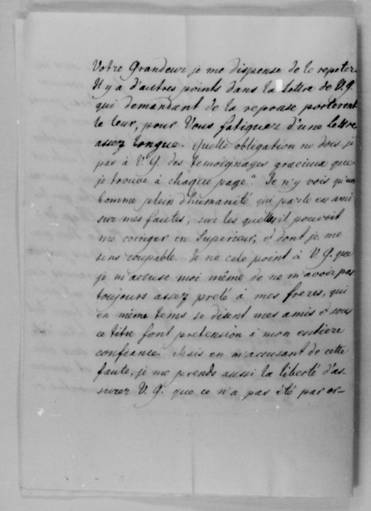 Votre Grandeur je me dispense de le repeter.
Il y a d'autres points dans la lettre de V. G.
qui demandent de la reponse porteront
la leur, pour Vous fatiguer d'une lettre
assez longue. Quelle obligation ne dois je
pas à V. G. des temoignages gracieux que
je trouve à chaque page. Je n'y vois qu'un
homme plein d'humanité qui parle en ami
sur mes fautes, sur les quelles il pouvoit
me corriger en Superieur, & dont je me
sens coupable. Je ne cele point à V. G. que
je m'accuse moi même de ne m'avoir pas
toujours assez preté à mes freres, qui
en même tems se disent mes amis & sous
ce titre font pretension à mon entiere
confiance. Mais en m'accusant de cette
faute, je me prends aussi la liberté d'as-
surer V. G. que ce n'a pas été par or-